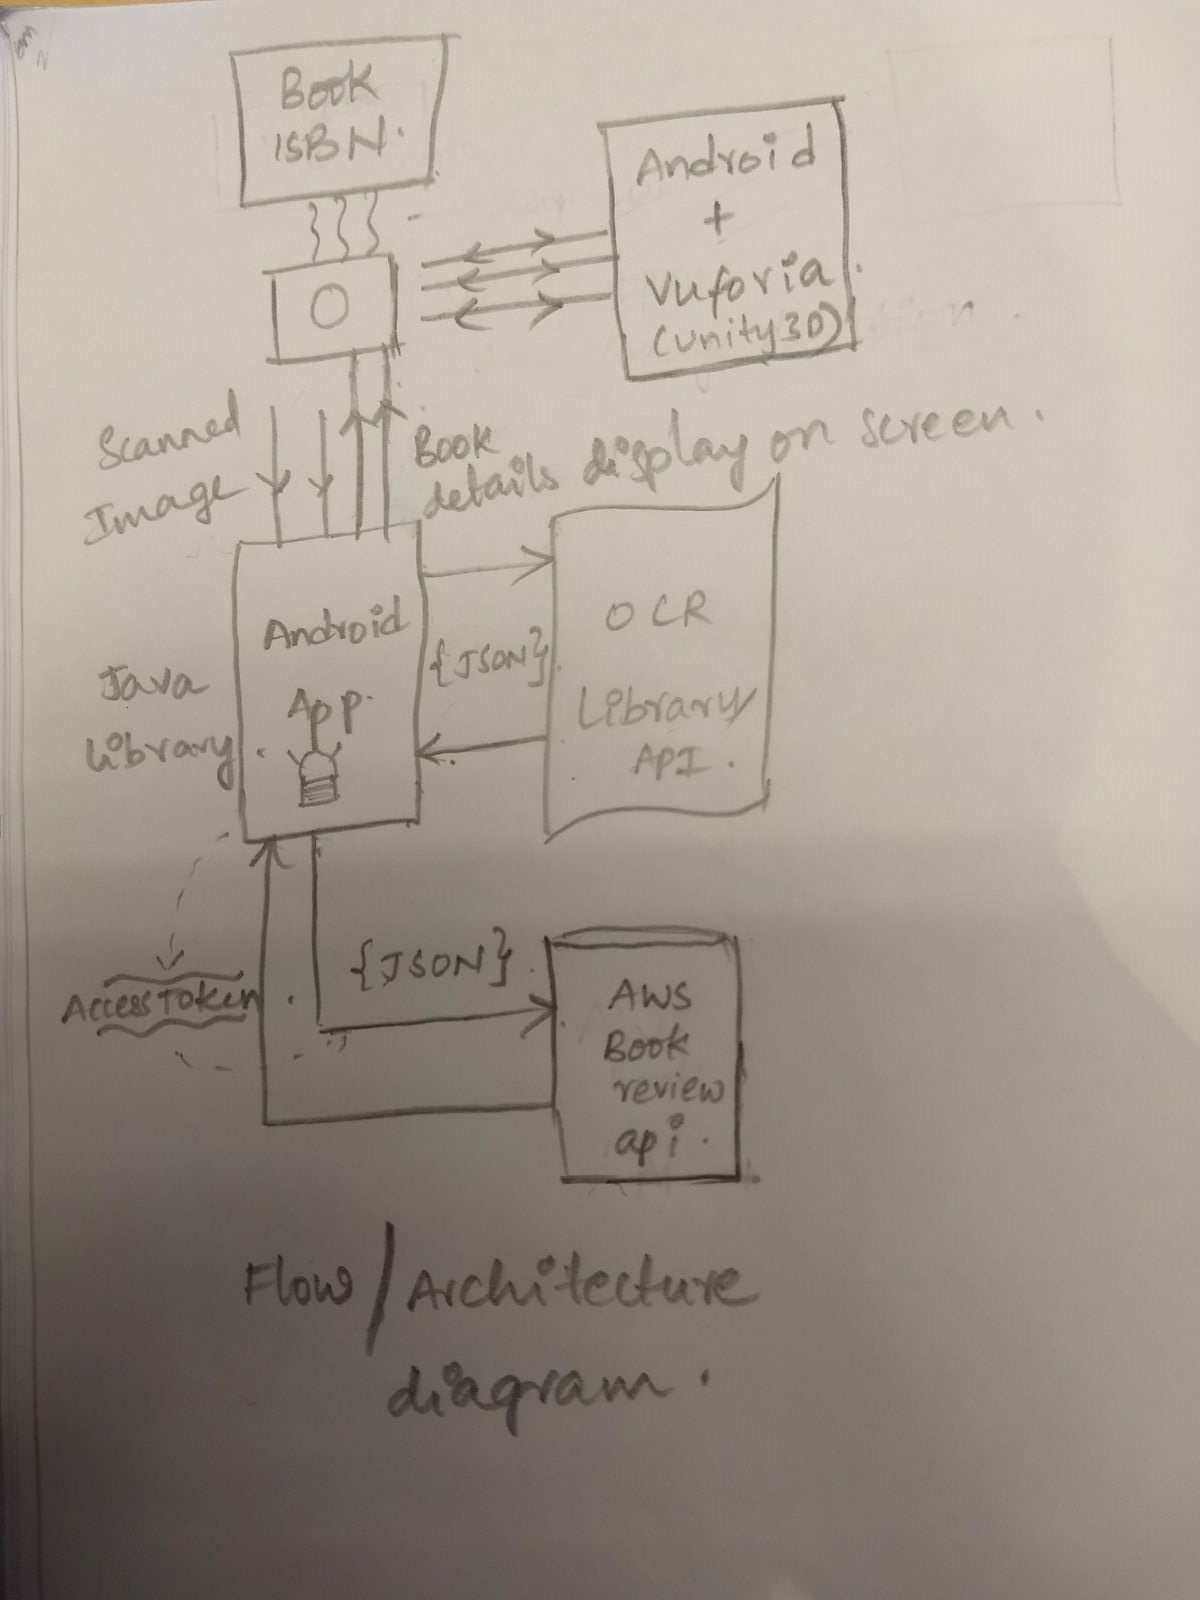 Book
ISBN.
Android
+
Vuforia
(unity3D)
Scanned
Image
Book
details display on screen.
Android
App.
Java
Library.
{JSON}
OCR
Library
API.
{JSON}
Access Token
AWS
Book
review
api.
Flow/Architecture
diagram.